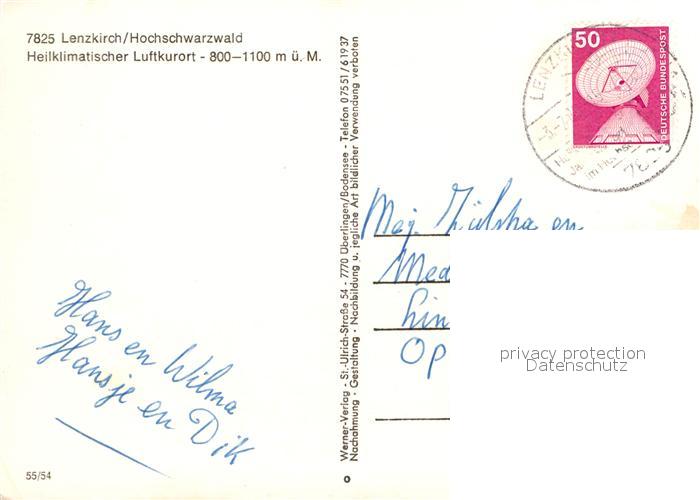 7825 Lenzkirch/Hochschwarzwald
Heilklimatischer Luftkurort - 800—1100 m ü. M.
Hans en Wilma
Hansje en Dik
55/54
Werner-Verlag - St.-Ulrich-Straße 54 - 7770 Überlingen/Bodensee - Telefon 07551/61937
Nachahmung · Gestaltung · Nachbildung u. jegliche Art bildlicher Verwendung verboten
50
DEUTSCHE BUNDESPOST
LENZKI
en
Med
Lin
Op
privacy protection
Datenschutz